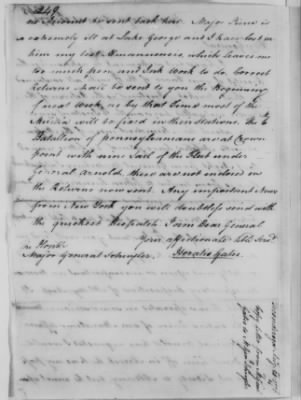 249
as Servant be sent back here. Major Pierce is
extremely ill at Lake George and I have lost in
him my best Amanuensis, which leaves me
too much pen and Ink Work to do. Correct
Returns shall be sent to you the Beginning
of next Week, as by that Time most of the
Militia will be fixed in these Stations, the 6th
Battalion of pennsylvanians are at Crown
point with nine Sail of the Fleet under
General Arnold, these are not included in
the Returns now sent. Any important News
from New York you will doubtless send with
the quickest Dispatch. I am Dear General
Your affectionate hble Servt
Horatio Gates
The Honble
Major General Schuyler
Ticonderoga
Copy letter from
Gates to Major